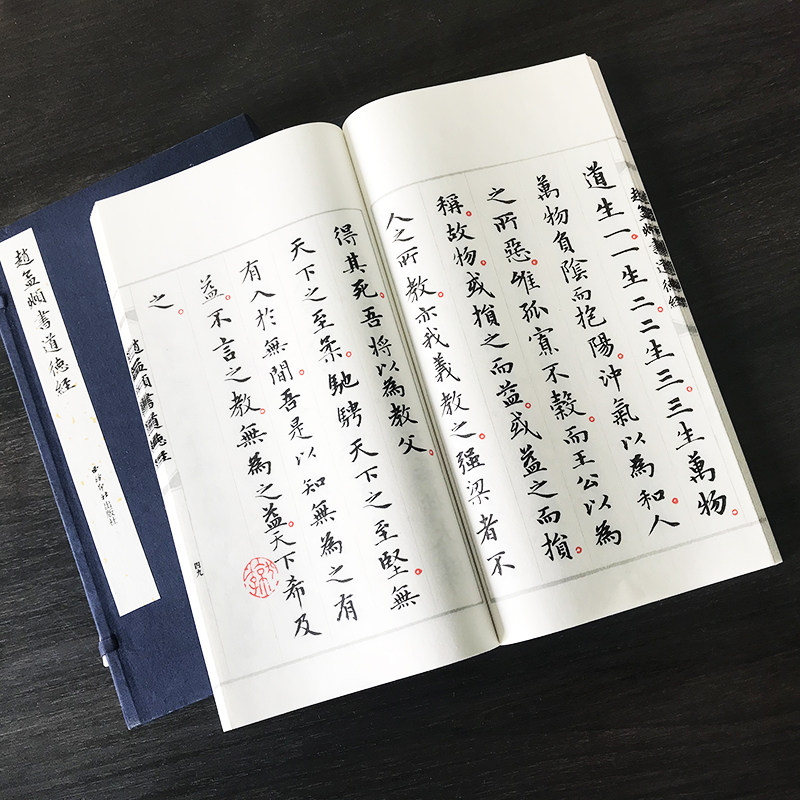 道生一。一生二。二生三。三生萬物。
萬物負陰而抱陽。沖氣以為和。人
之所惡。唯孤寡不穀。而王公以為
稱。故物或損之而益。或益之而損。
人之所教亦我義教之。強梁者不
得其死。吾將以為教父。
天下之至柔。馳騁天下之至堅。無
有入於無間吾是以知無為之有
益。不言之教。無為之益。天下希及
之。
四九
趙孟頫書道德經
趙孟頫書道德經
趙孟頫書道德經
西泠印社出版社